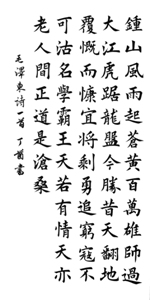 鍾山風雨起蒼黄百萬雄師過
大江虎踞龍盤今勝昔天翻地
覆慨而慷宜將剩勇追窮寇不
可沽名學霸王天若有情天亦
老人間正道是滄桑
毛澤東詩一首 丁酉書